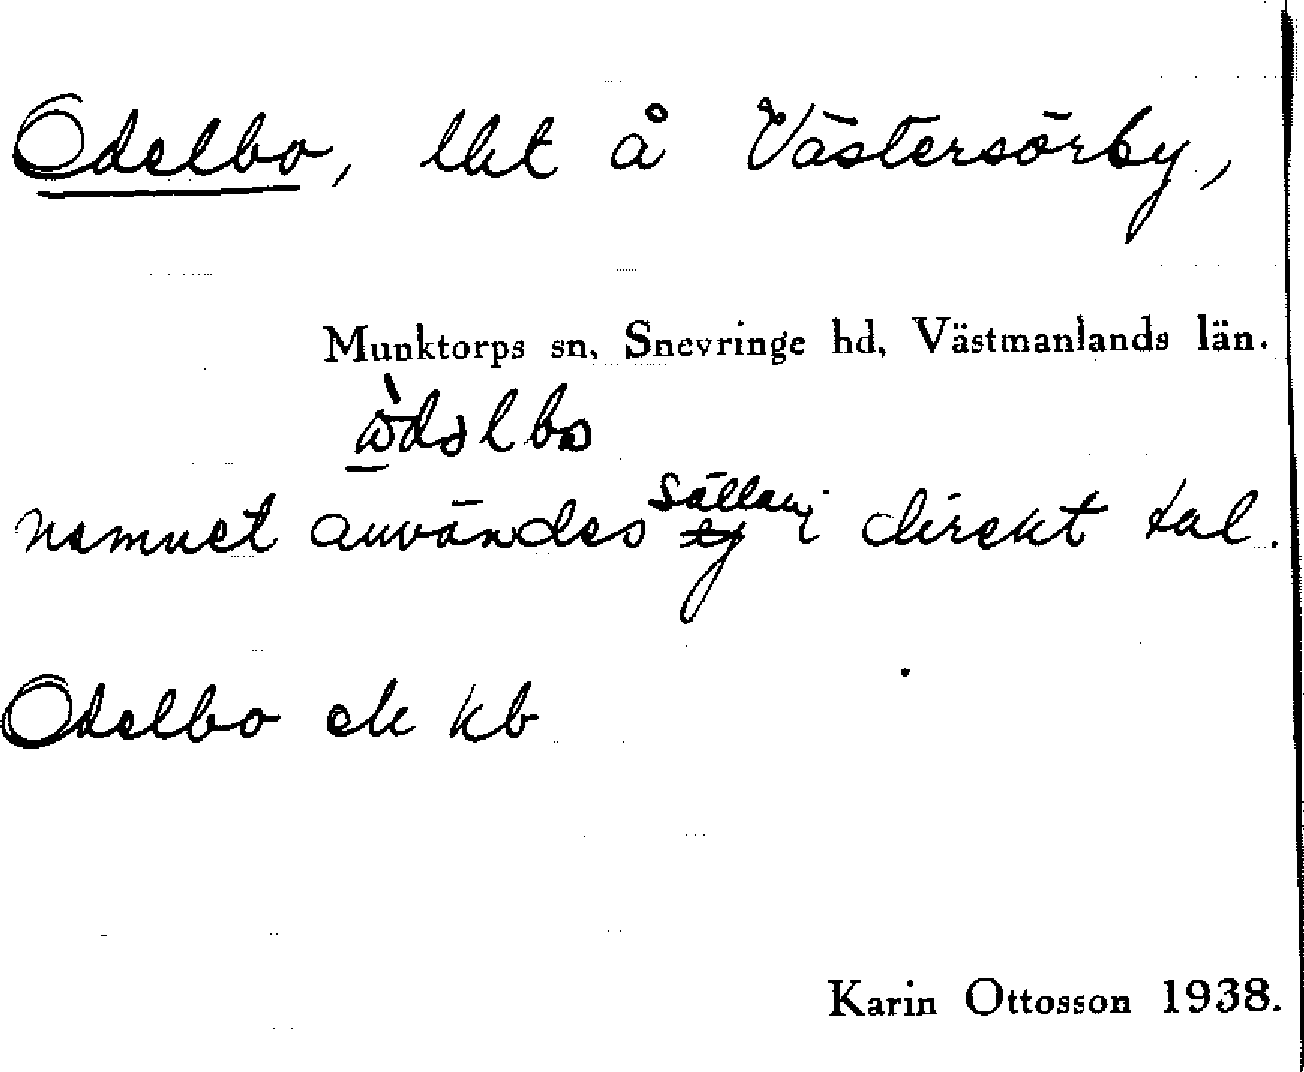 Odelbo, lht å Västersörby,
Munktorps sn, Snevringe hd, Västmanlands län.
namnet användes sällan i direkt tal.
Odelbo ek kb
Karin Ottosson 1938.